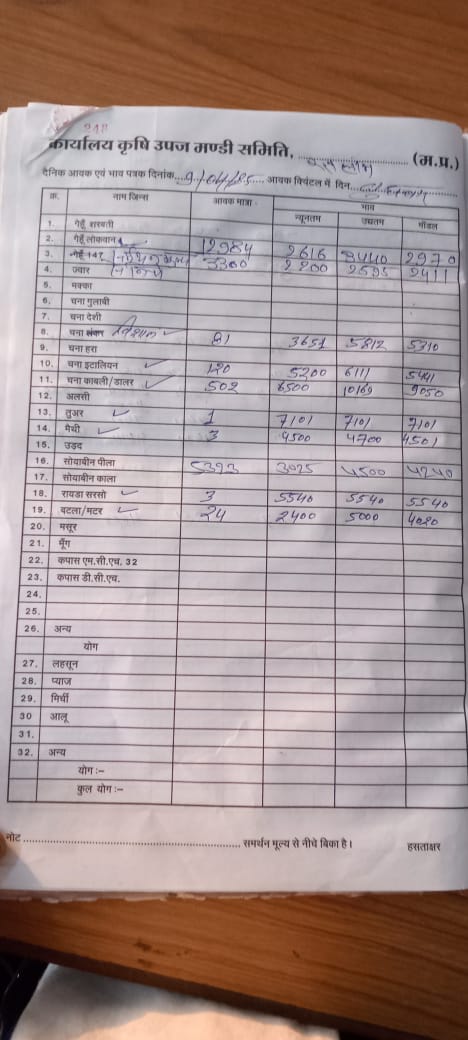 कार्यालय कृषि उपज मण्डी समिति, रतलाम (म.प्र.)
दैनिक आवक एवं भाव पत्रक दिनांक... आवक क्विंटल में दिन...
क्र. नाम जिन्स आवक मात्रा भाव
न्यूनतम उच्चतम मॉडल
1. गेहूँ शरबती
2. गेहूँ लोकवान 12984 2616 3440 2970
3. गेहूँ 147 3300 2200 2595 2411
4. ज्वार
5. मक्का
6. चना गुलाबी
7. चना देशी
8. चना शंकर विशाल 81 3651 5812 5310
9. चना हरा
10. चना इटालियन 120 5200 6111 5441
11. चना काबली/डालर 502 6500 10169 9050
12. अलसी
13. तुअर 1 7101 7101 7101
14. मैथी 3 4500 4700 4501
15. उड़द
16. सोयाबीन पीला 5393 3025 4500 4240
17. सोयाबीन काला
18. रायडा सरसो 3 5540 5540 5540
19. बटला/मटर 24 2400 5000 4020
20. मसूर
21. मूँग
22. कपास एम.सी.एच. 32
23. कपास डी.सी.एच.
24.
25.
26. अन्य
योग
27. लहसून
28. प्याज
29. मिर्ची
30 आलू
31.
32. अन्य
योग :–
कुल योग :–
नोट ... समर्थन मूल्य से नीचे बिका है। हस्ताक्षर